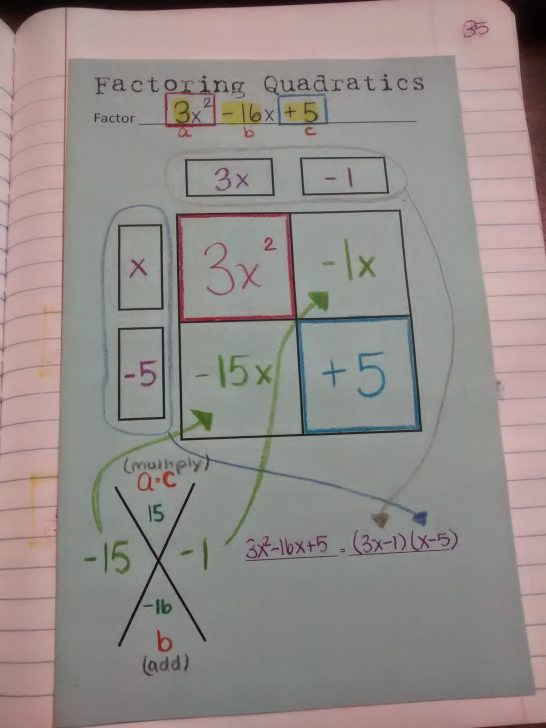 35
Factoring Quadratics
Factor 3x² -16x +5
a b c
3x -1
x 3x² -1x
-5 -15x +5
(multiply)
a·c
15
-15 -1
3x²-16x+5 = (3x-1)(x-5)
-16
b
(add)